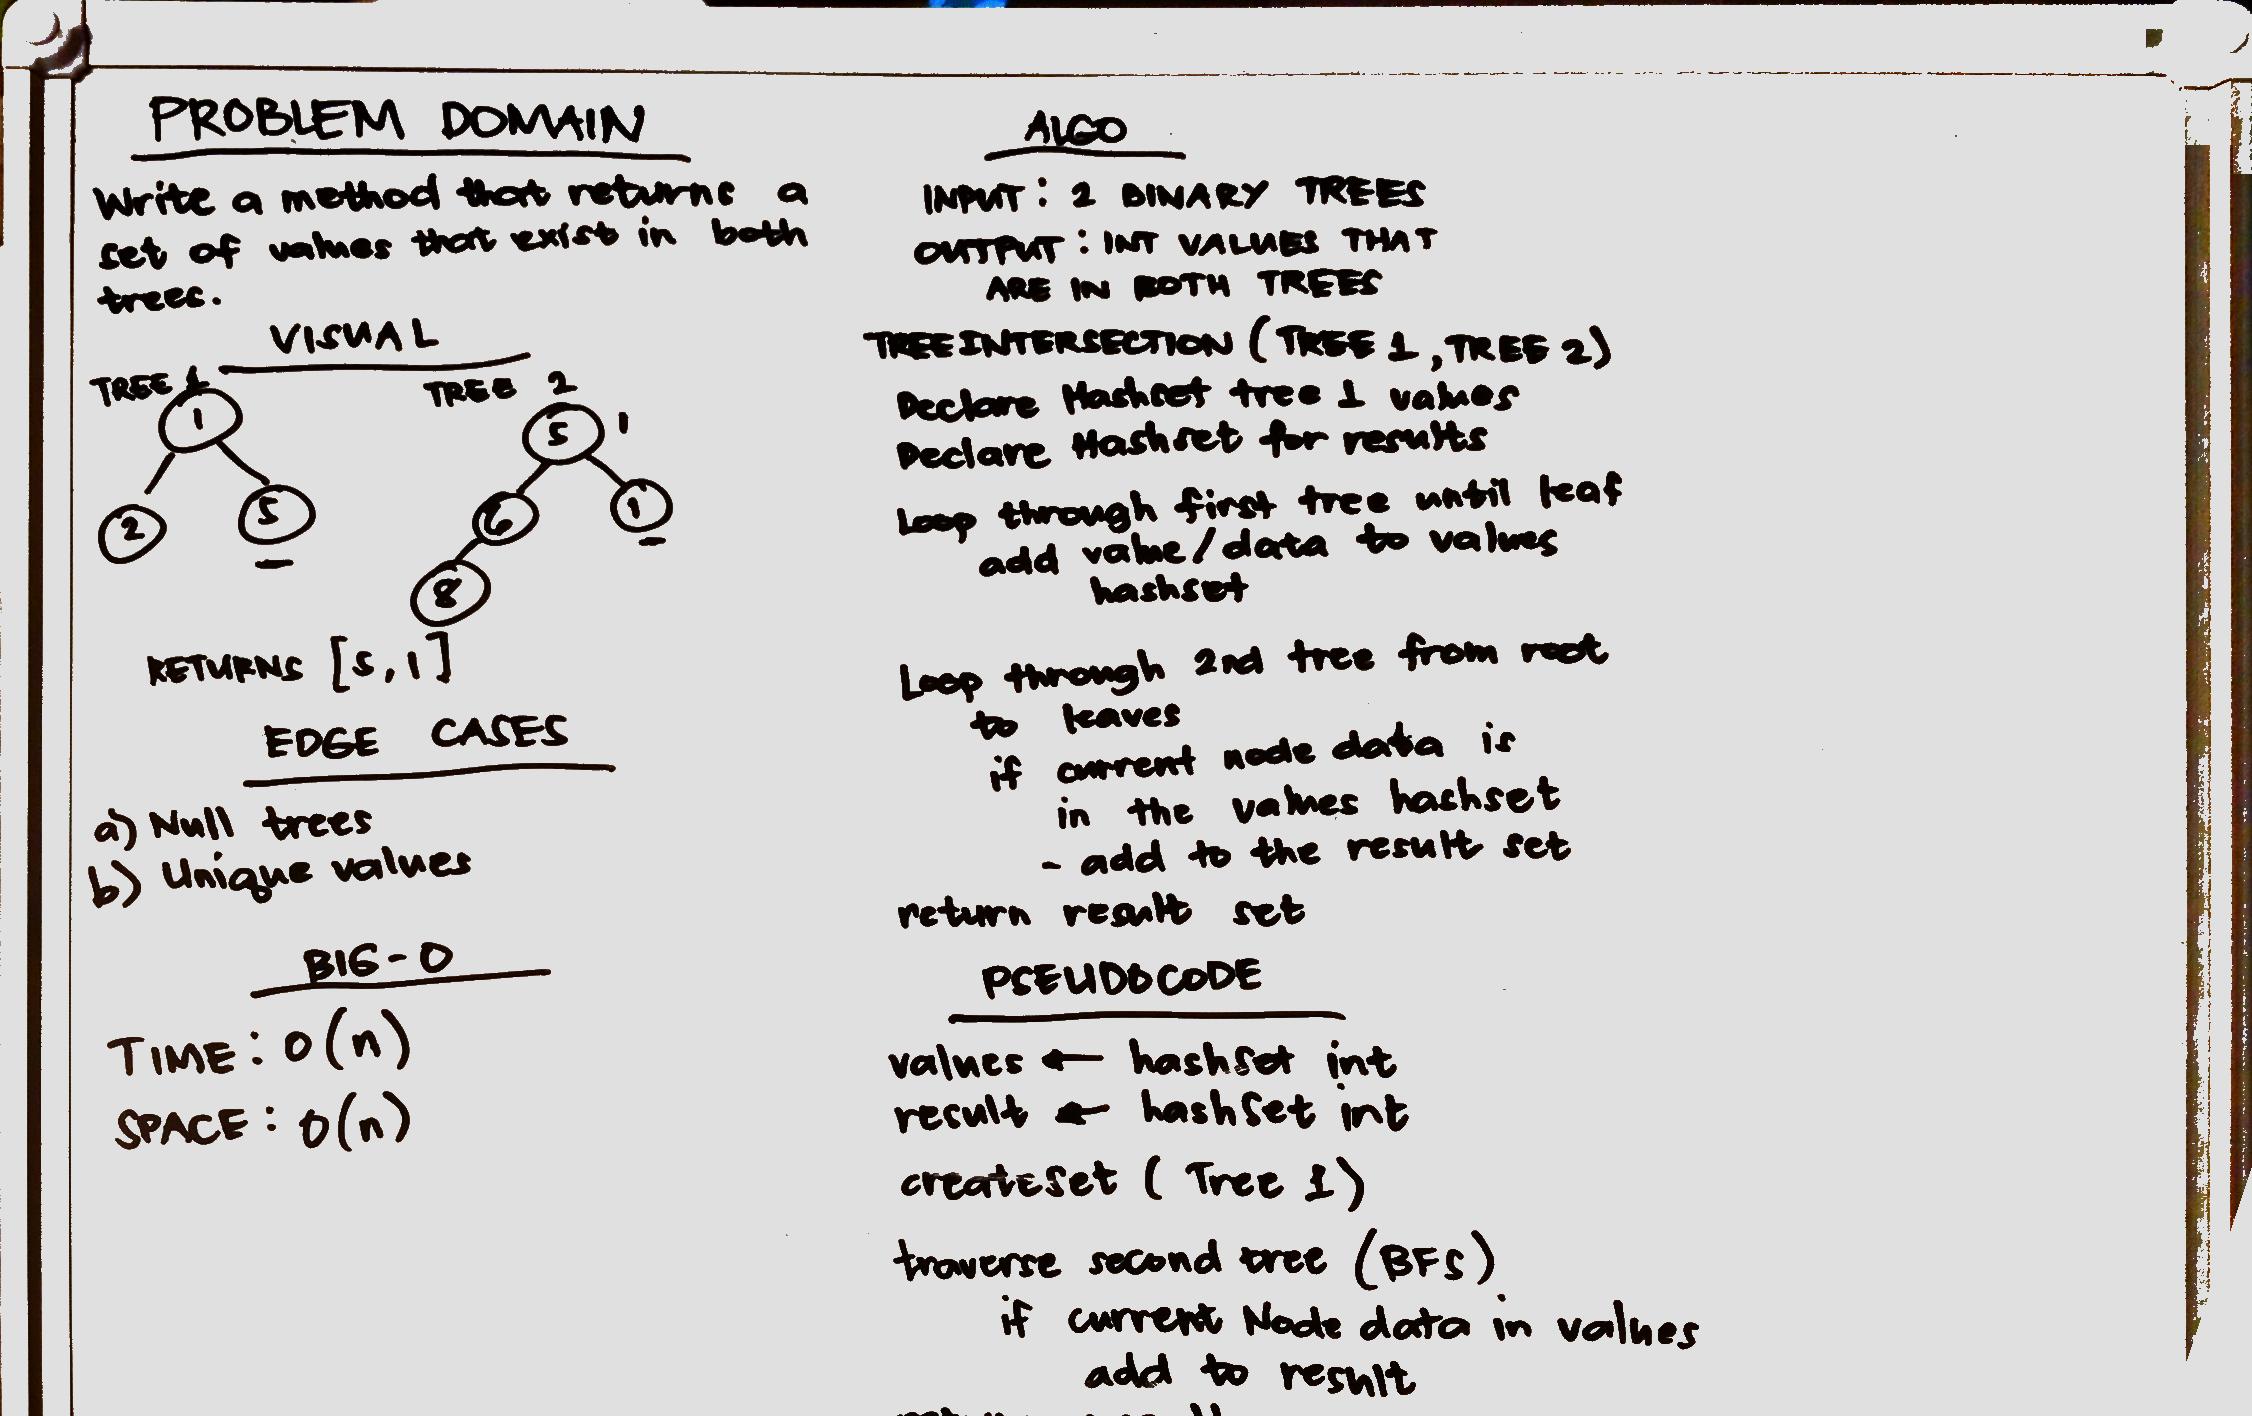 PROBLEM DOMAIN
Write a method that returns a
set of values that exist in both
trees.
VISUAL
TREE 1
1
2
5
TREE 2
5
1
6
1
8
RETURNS [5,1]
EDGE CASES
a) Null trees
b) Unique values
BIG-O
TIME: O(n)
SPACE: O(n)
ALGO
INPUT: 2 BINARY TREES
OUTPUT: INT VALUES THAT
ARE IN BOTH TREES
TREEINTERSECTION (TREE 1, TREE 2)
Declare Hashset tree 1 values
Declare Hashset for results
Loop through first tree until leaf
add value/data to values
hashset
Loop through 2nd tree from root
to leaves
if current node data is
in the values hashset
- add to the result set
return result set
PSEUDOCODE
values ← hashSet int
result ← hashSet int
createSet (Tree 1)
traverse second tree (BFS)
if current Node data in values
add to result